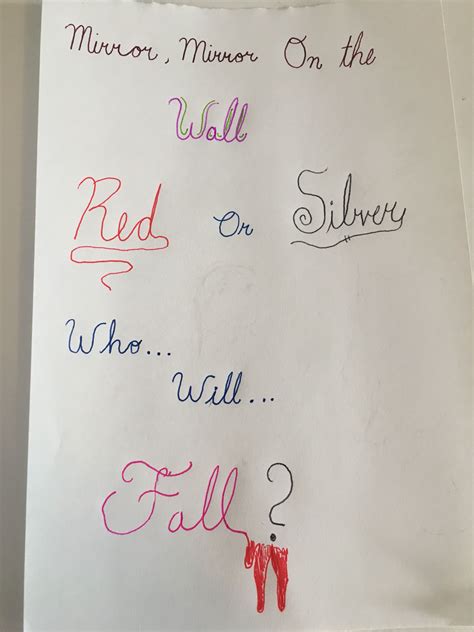 Mirror, Mirror On the
Wall
Red or Silver
Who...
Will...
Fall?